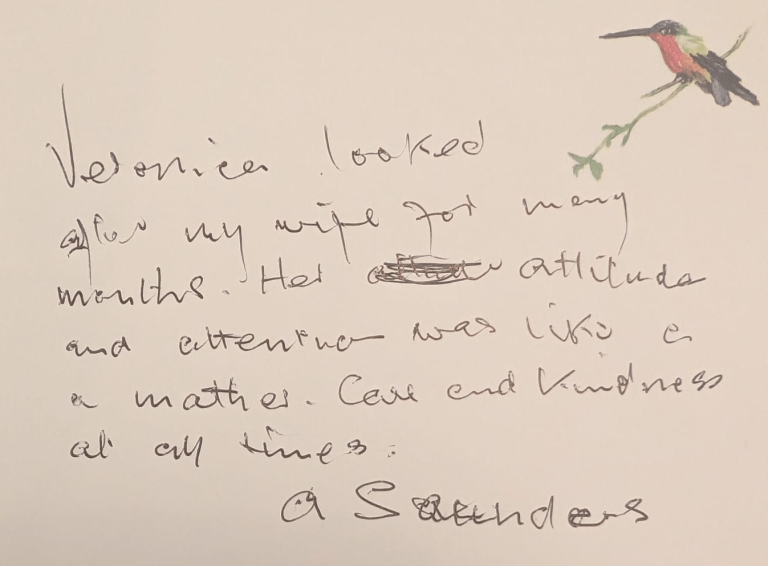 Veronica looked
after my wife for many
months. Her attitude
and attention was like a
a mother. Care and Kindness
at all times.
A Saunders